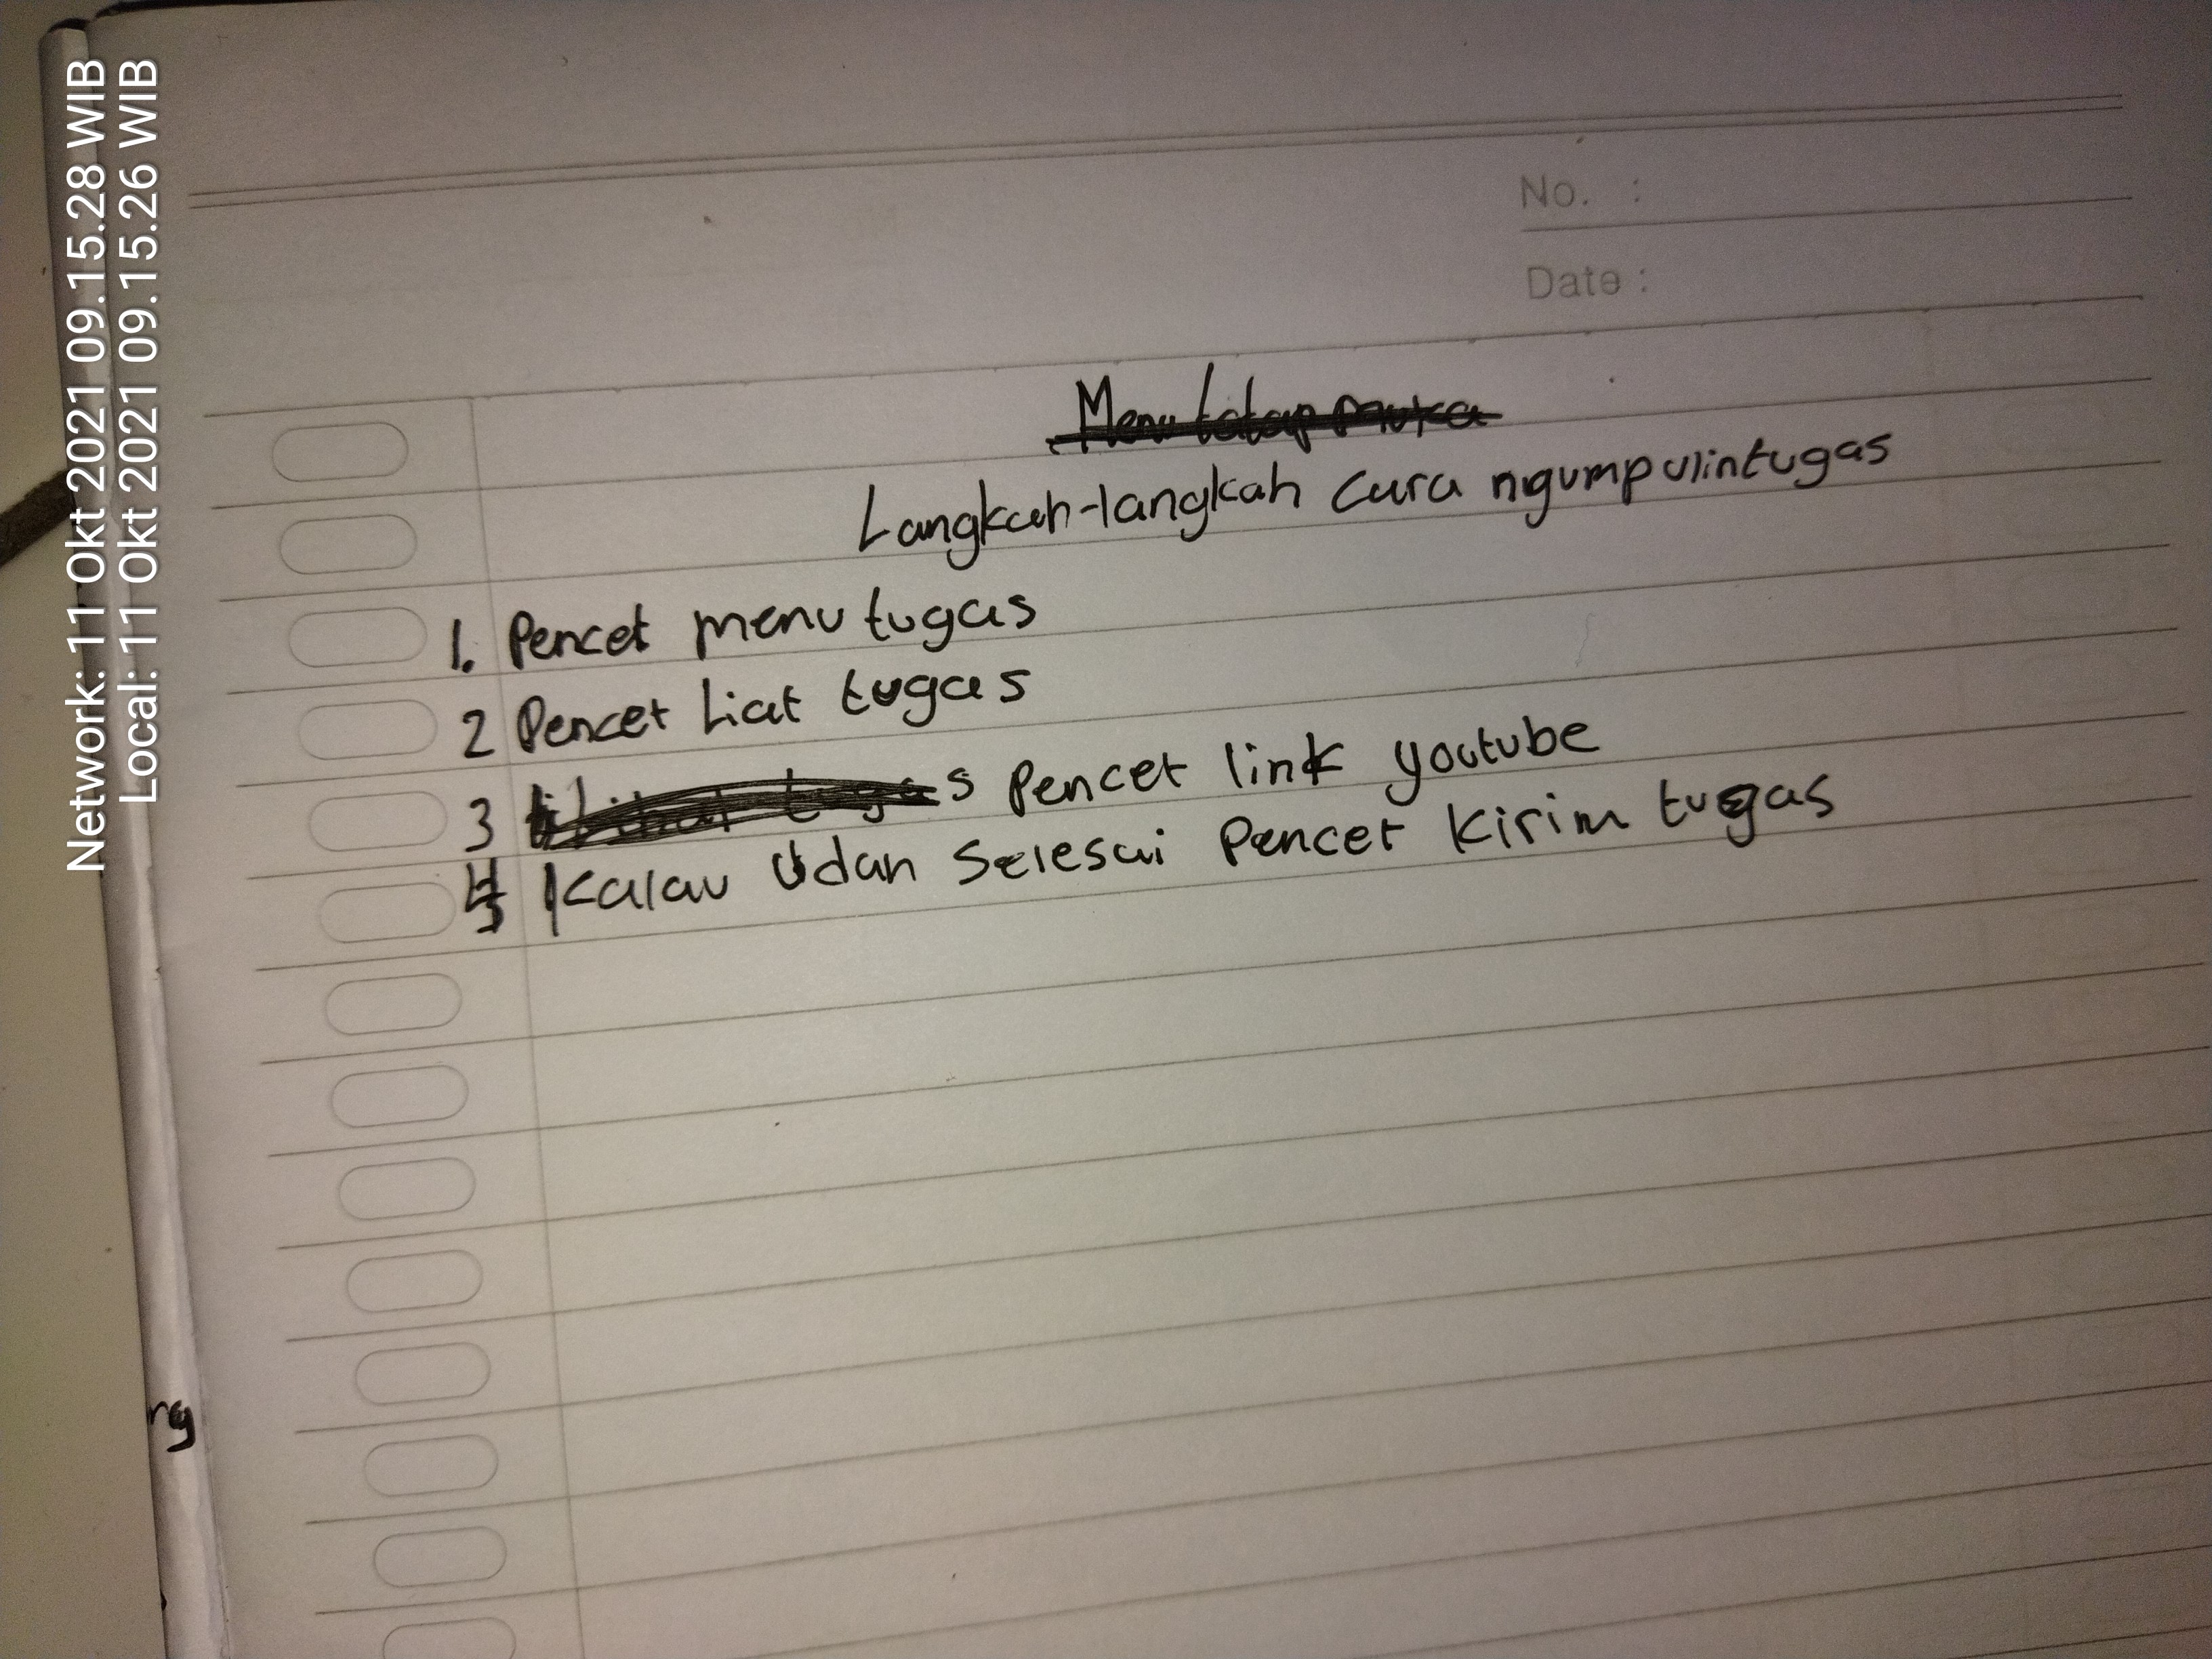 Network: 11 Okt 2021 09.15.28 WIB
Local: 11 Okt 2021 09.15.26 WIB
No. :
Date :
Langkah-langkah cara ngumpulintugas
1. Pencet menu tugas
2 Pencet liat tugas
3 s Pencet link youtube
4 Kalau udah selesai Pencet Kirim tugas
ng